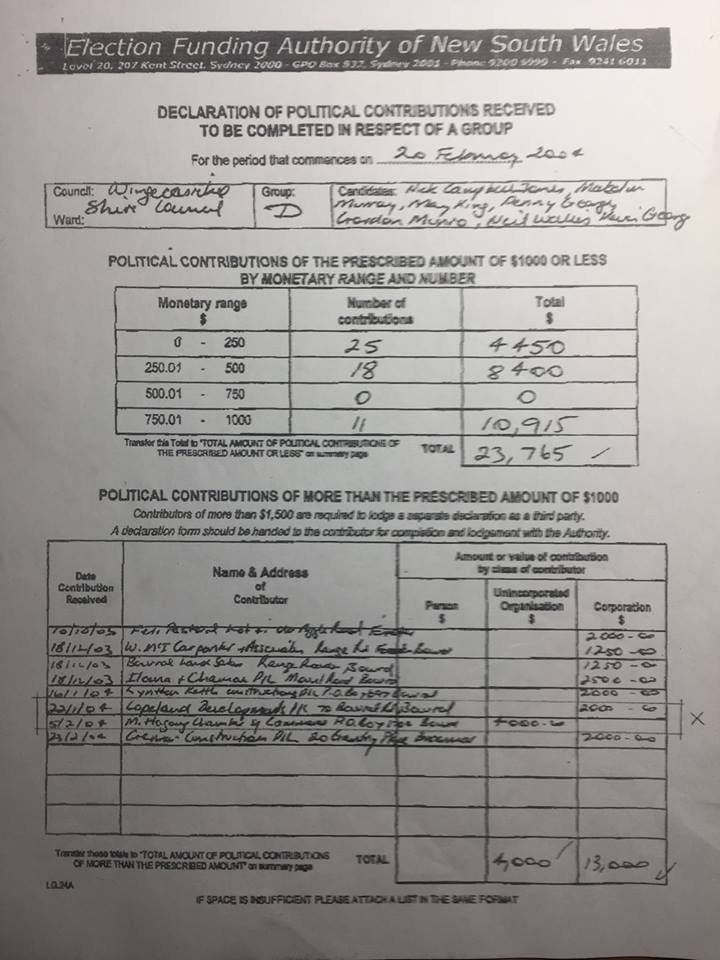 Election Funding Authority of New South Wales
Level 20, 207 Kent Street, Sydney 2000 - GPO Box 832, Sydney 2001 - Phone 9200 5999 - Fax 9241 6011
DECLARATION OF POLITICAL CONTRIBUTIONS RECEIVED
TO BE COMPLETED IN RESPECT OF A GROUP
For the period that commences on 20 February 2004
Council: Wingecarribee Group: Candidates: Nick Campbell Jones, Malcolm
Shire Council D Murray, May King, Penny George
Ward: Gordon Munro, Neil George
POLITICAL CONTRIBUTIONS OF THE PRESCRIBED AMOUNT OF $1000 OR LESS
BY MONETARY RANGE AND NUMBER
Monetary range Number of Total
$ contributions $
0 - 250 25 4450
250.01 - 500 18 8400
500.01 - 750 0 0
750.01 - 1000 11 10,915
Transfer this Total to "TOTAL AMOUNT OF POLITICAL CONTRIBUTIONS OF
THE PRESCRIBED AMOUNT OR LESS" on summary page TOTAL 23,765
POLITICAL CONTRIBUTIONS OF MORE THAN THE PRESCRIBED AMOUNT OF $1000
Contributors of more than $1,500 are required to lodge a separate declaration as a third party.
A declaration form should be handed to the contributor for completion and lodgement with the Authority.
Amount or value of contribution
by class of contributor
Date Name & Address
Contribution of
Received Contributor
Person Unincorporated Corporation
$ Organisation $
$
10/10/03 2000-00
18/12/03 W. McI Carpenter & Associates Range Rd 1250-00
18/12/03 Bowral Land Sales Range Road Bowral 1250-00
18/12/03 P/L Road Bowral 2500-00
16/1/04 Kettle Constructions P/L Bowral 2000-00
22/1/04 Copeland Developments P/L Bowral Rd Bowral 2000-00
5/2/04 Chamber of Commerce 4000-00
23/2/04 Construction P/L 20 Place 2000-00
Transfer these totals to "TOTAL AMOUNT OF POLITICAL CONTRIBUTIONS
OF MORE THAN THE PRESCRIBED AMOUNT" on summary page TOTAL 4,000 13,000
LG.24A
IF SPACE IS INSUFFICIENT PLEASE ATTACH A LIST IN THE SAME FORMAT